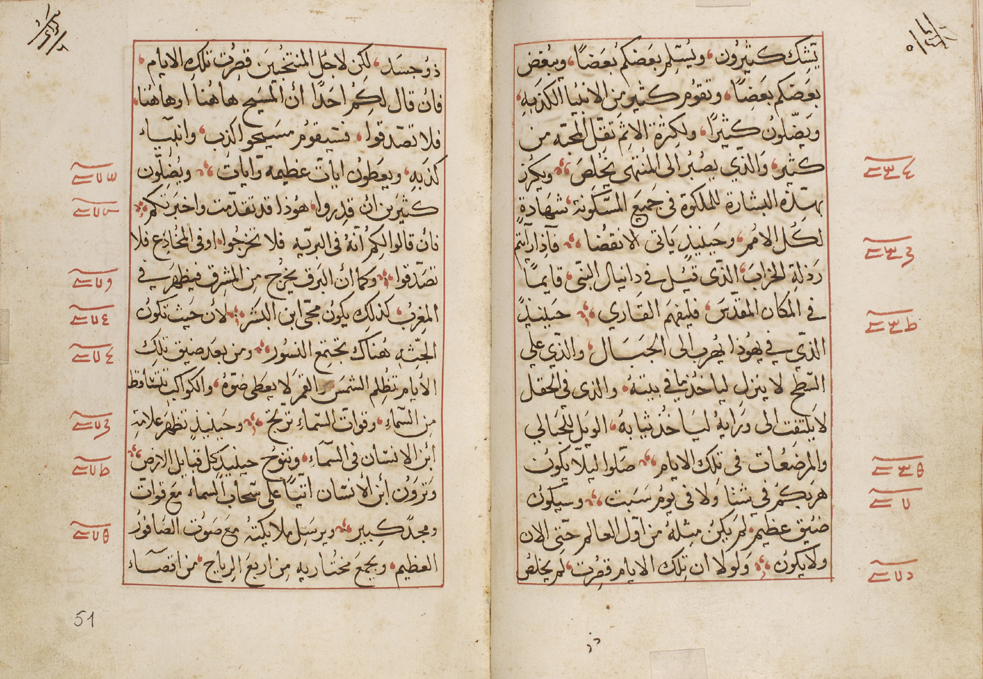 يشك كثيرون ويسلم بعضكم بعضا ويبغض
بعضكم بعضا ويقوم كثير من الانبيا الكذبه
ويضلون كثيرا ولكثرة الاثم تقل المحبه من
كثير والذي يصبر الى المنتهى يخلص ويكرز
بهذه البشارة الملكوة في جميع المسكونة شهادة
لكل الامم وحينيذ ياتي الانقضا فاذا رايتم
رذلة الخراب الذي قيل في دانيال النبي قايما
في المكان المقدس فليفهم القاري حينيذ
الذي في يهوذا يهرب الى الجبال والذي على
السطح لا ينزل لياخذ ما في بيته والذي في الحقل
لا يلتفت الى ورايه لياخذ ثيابه الويل للحبالى
والمرضعات في تلك الايام صلوا ليلا يكون
هربكم في شتا ولا في يوم سبت وسيكون
ضيق عظيم لم يكن مثله من اول العالم حتى الان
ولا يكون ولولا ان تلك الايام قصرت لم يخلص
ذو جسد لكن لاجل المنتخبين قصرت تلك الايام
فان قال لكم احدا ان المسيح هاهنا او هاهنا
فلا تصدقوا فسيقوم مسيحو الكذب وانبياء
كذبه ويعطون ايات عظيمه وايات ويضلون
كثيرين ان قدروا هوذا قد تقدمت واخبرتكم
فان قالوا لكم انه في البريه فلا تخرجوا او في المخادع فلا
تصدقوا وكما ان البرق يخرج من المشرق فيظهر في
المغرب كذلك يكون مجي ابن البشر لان حيث تكون
الجثه هناك تجتمع النسور ومن بعد ضيق تلك
الايام تظلم الشمس القمر لا يعطى ضوه والكواكب تتساقط
من السماء وقوات السماء ترتج وحينيذ تظهر علامة
ابن الانسان في السماء وتنوح حينيذ كل قبايل الارض
وترون ابن الانسان اتيا على سحاب السماء مع قوات
ومجد كبير ويرسل ملايكته مع صوت الصافور
العظيم ويجمع مختاريه من اربع الرياح من اقصاء
51